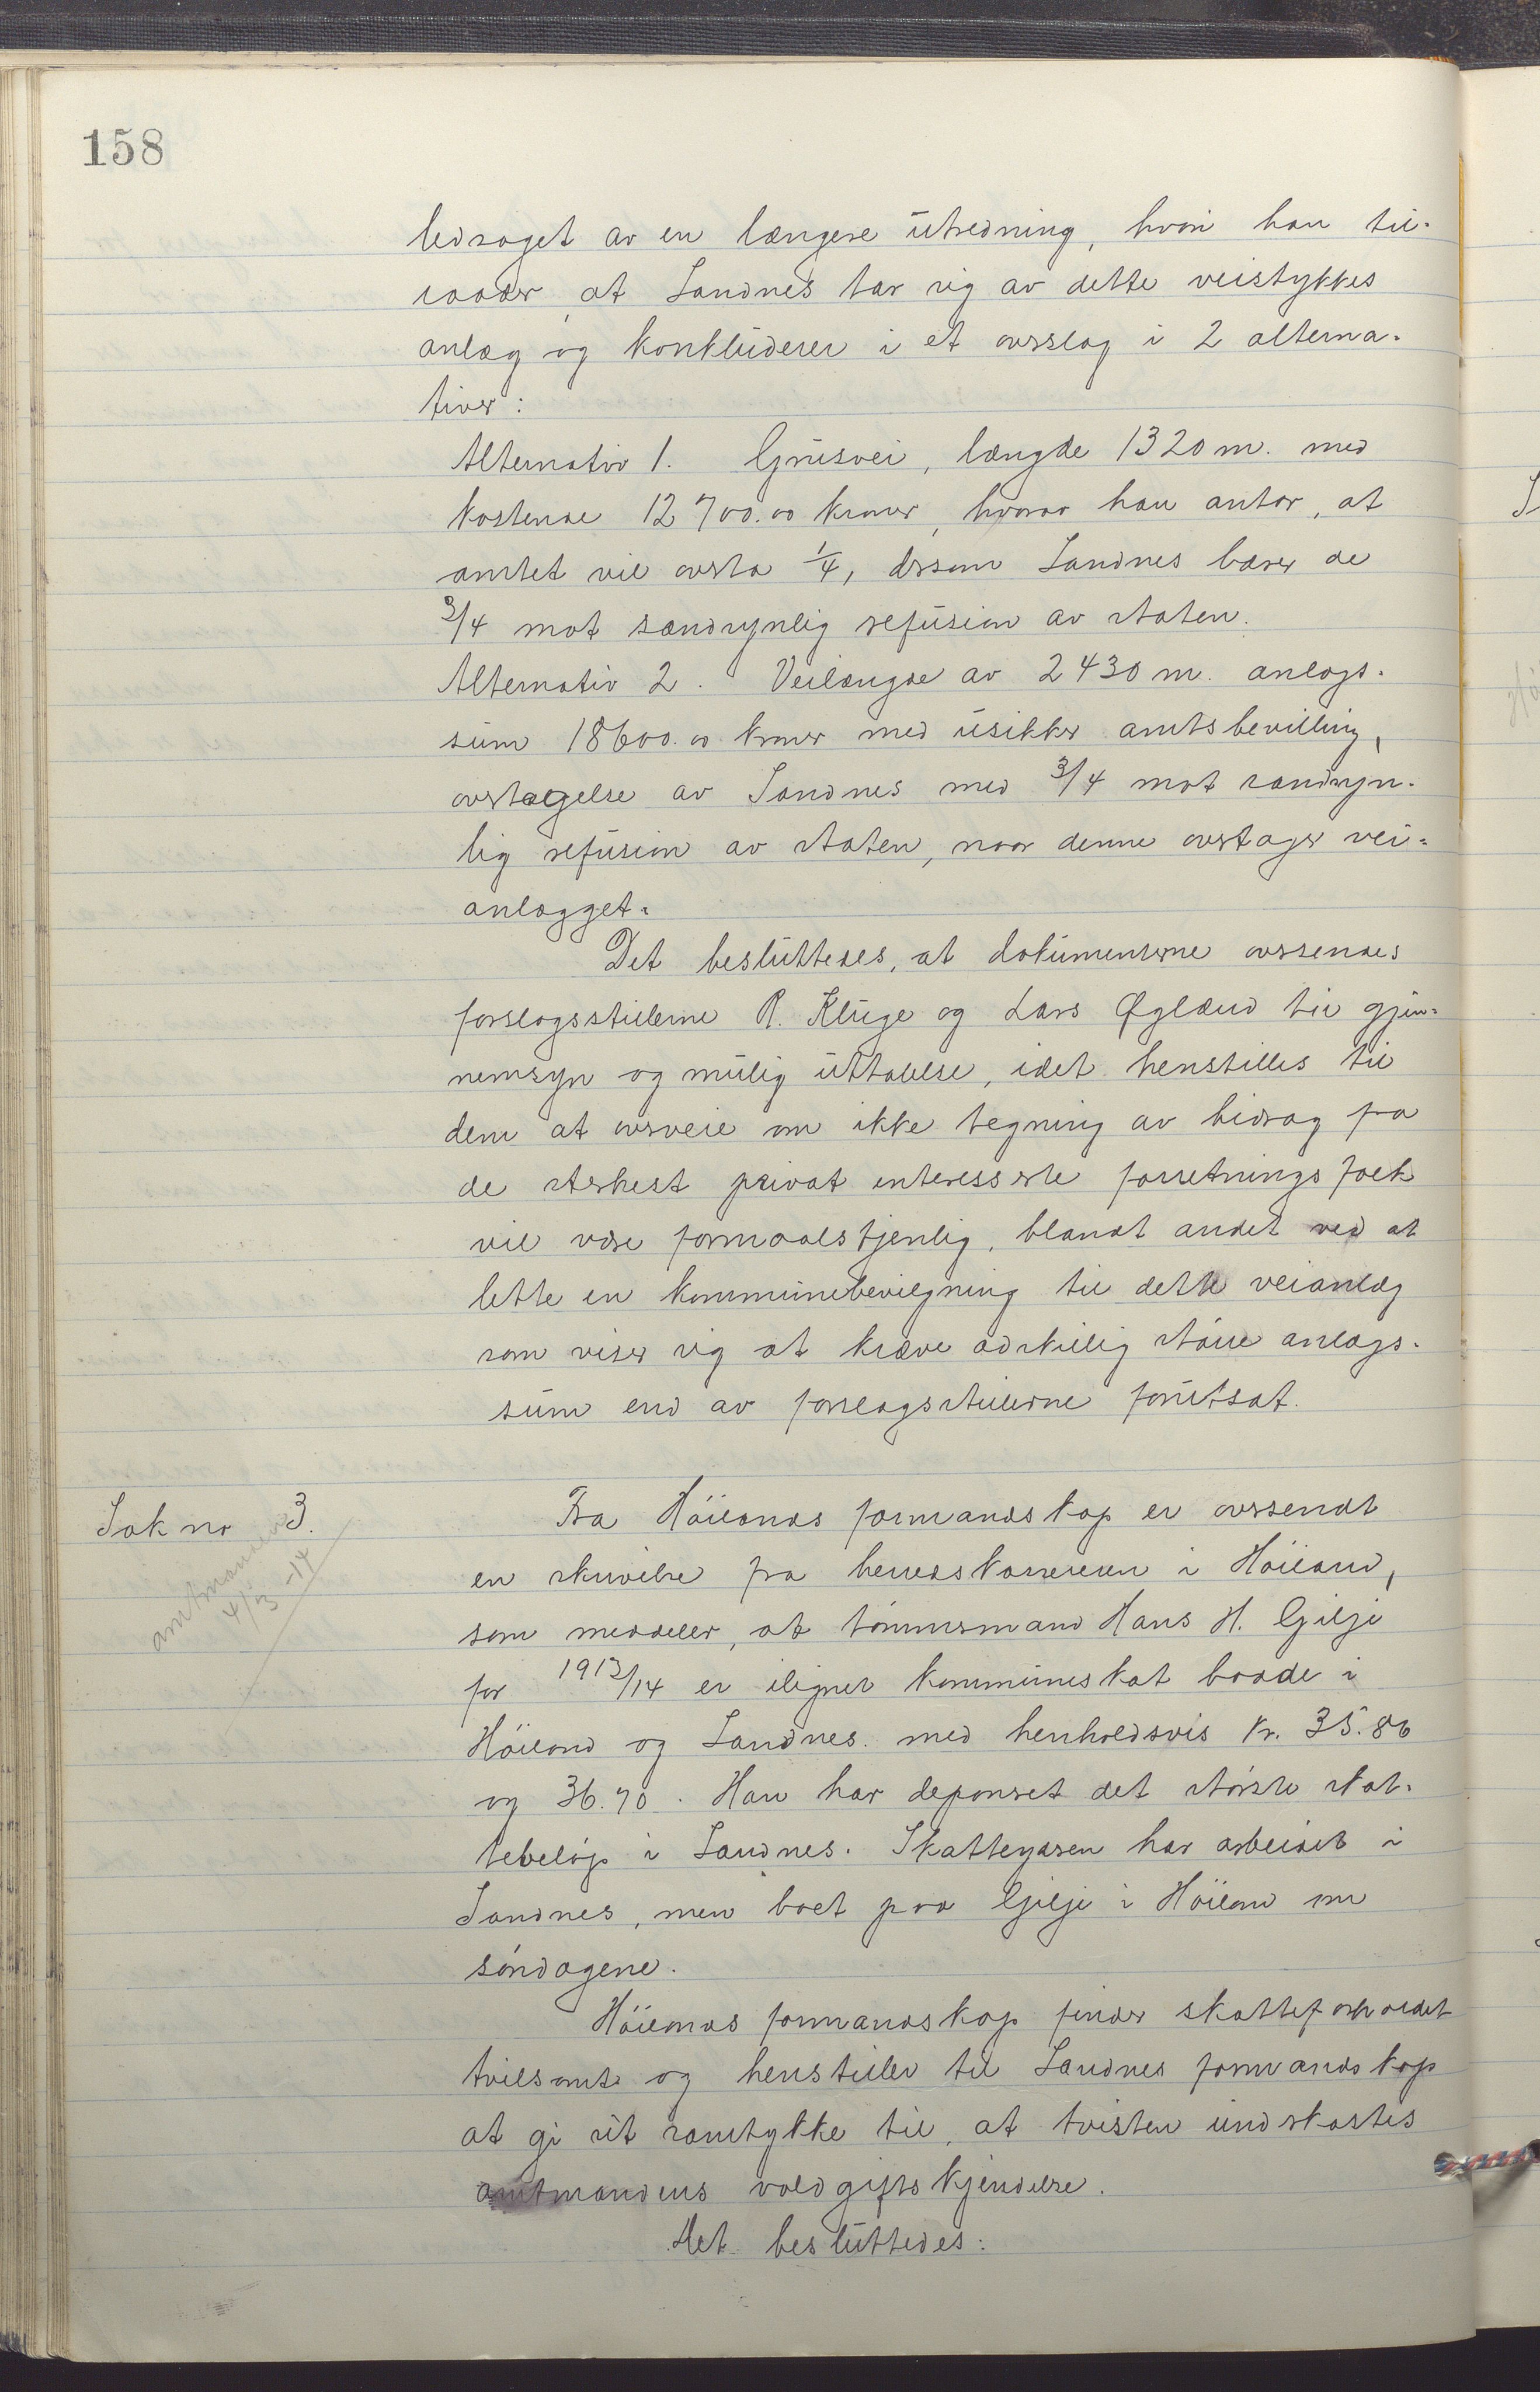 158
ledsaget av en længere utredning, hvori han til-
raader, at Sandnes tar sig av dette veistykkes
anlæg og konkluderer i et overslag i 2 alterna-
tiver:
Alternativ 1. Grusvei, længde 1320 m. med
kostende 12700.00 kroner, hvorav han antar, at
amtet vil overta 1/4, dersom Sandnes bærer de
3/4 mot sandsynlig refusion av staten.
Alternativ 2. Veilængde av 2430 m. anlægs-
sum 18600.00 kroner med usikker amtsbevilling,
overtagelse av Sandnes med 3/4 mot sandsyn-
lig refusion av staten, naar denne overtager vei-
anlægget.
Det besluttedes, at dokumenterne oversendes
forslagsstillerne R. Kluge og Lars Øglænd til gjen-
nemsyn og mulig uttalelse, idet henstilles til
dem at overveie om ikke tegning av bidrag fra
de sterkest privat interesserte forretningsfolk
vil være formaalstjenlig, blandt andet ved at
lette en kommunebevilgning til dette veianlæg
som viser sig at kræve adskillig større anlægs-
sum end av forslagsstillerne forutsat.
Sak no 3.
amtmanden
4/3 -14
Fra Höilands formandskap er oversendt
en skrivelse fra herredskassereren i Höiland,
som meddeler, at tömmermand Hans H. Gilje
for 1913/14 er ilignet kommuneskat baade i
Höiland og Sandnes med henholdsvis kr. 35.86
og 36.70. Han har deponert det største skat-
tebeløp i Sandnes. Skatteyderen har arbeidet i
Sandnes, men boet paa Gilje i Höiland om
söndagene.
Höilands formandskap finder skatteforholdet
tvilsomt og henstiller til Sandnes formandskap
at gi sit samtykke til, at tvisten underkastes
amtmandens voldgiftskjendelse.
Det besluttedes: